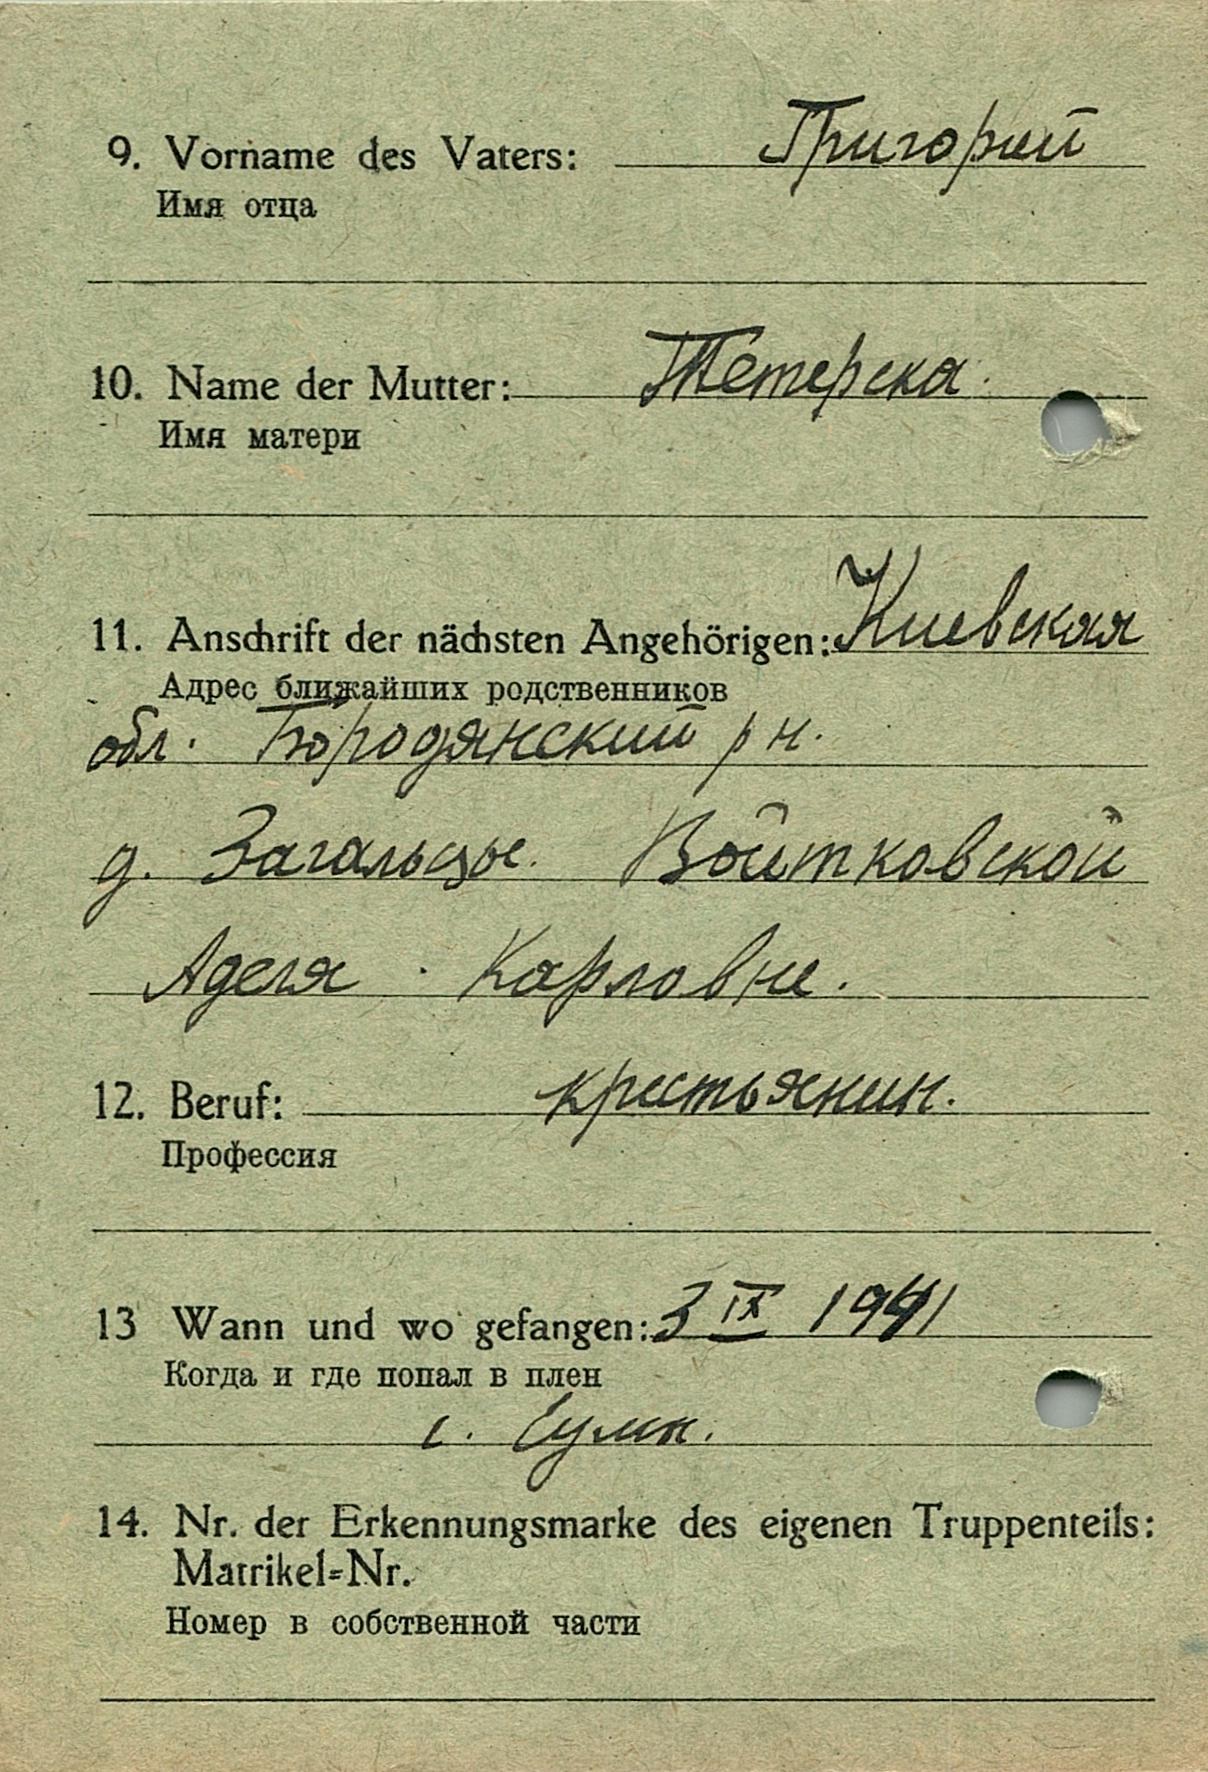 9. Vorname des Vaters: Григорий
Имя отца
10. Name der Mutter: Тетерска
Имя матери
11. Anschrift der nächsten Angehörigen: Киевская
Адрес ближайших родственников
обл. Бородянский рн.
д. Загальцы. Войтковской
Аделя Карловне.
12. Beruf: крестьянин.
Профессия
13 Wann und wo gefangen: 3 IX 1941
Когда и где попал в плен
14. Nr. der Erkennungsmarke des eigenen Truppenteils:
Matrikel=Nr.
Номер в собственной части